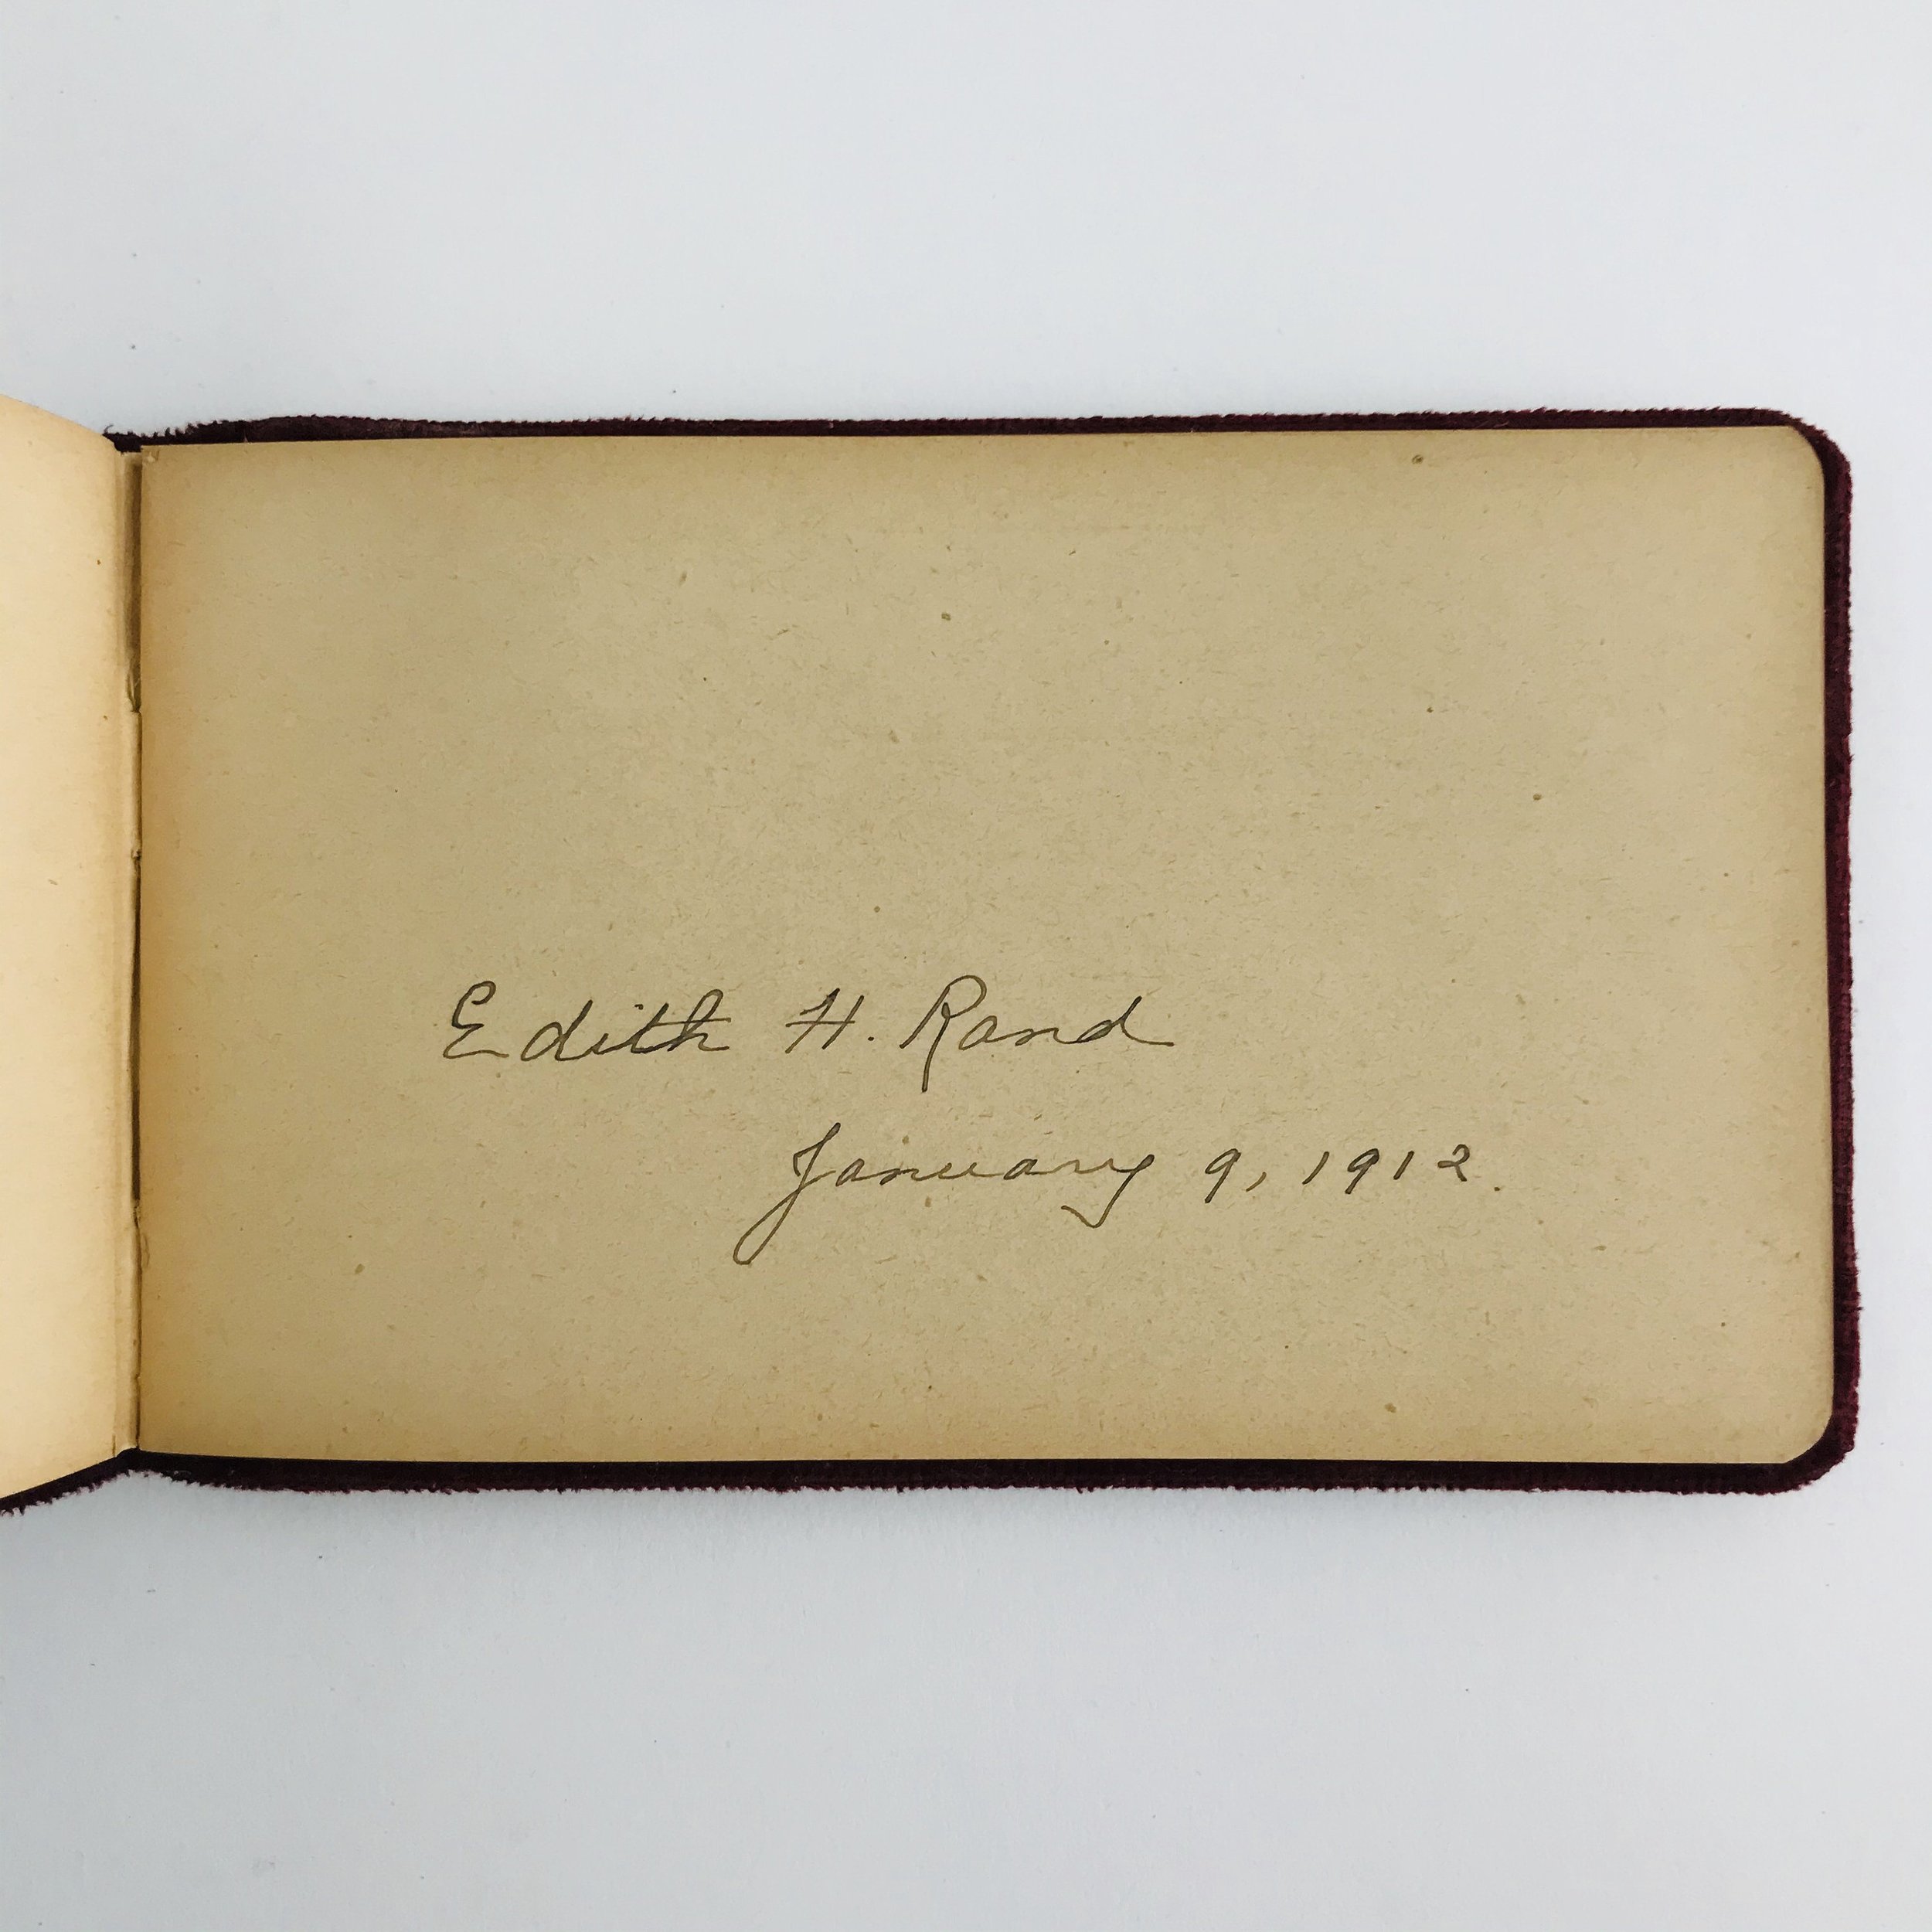 Edith H. Rand
January 9, 1912.